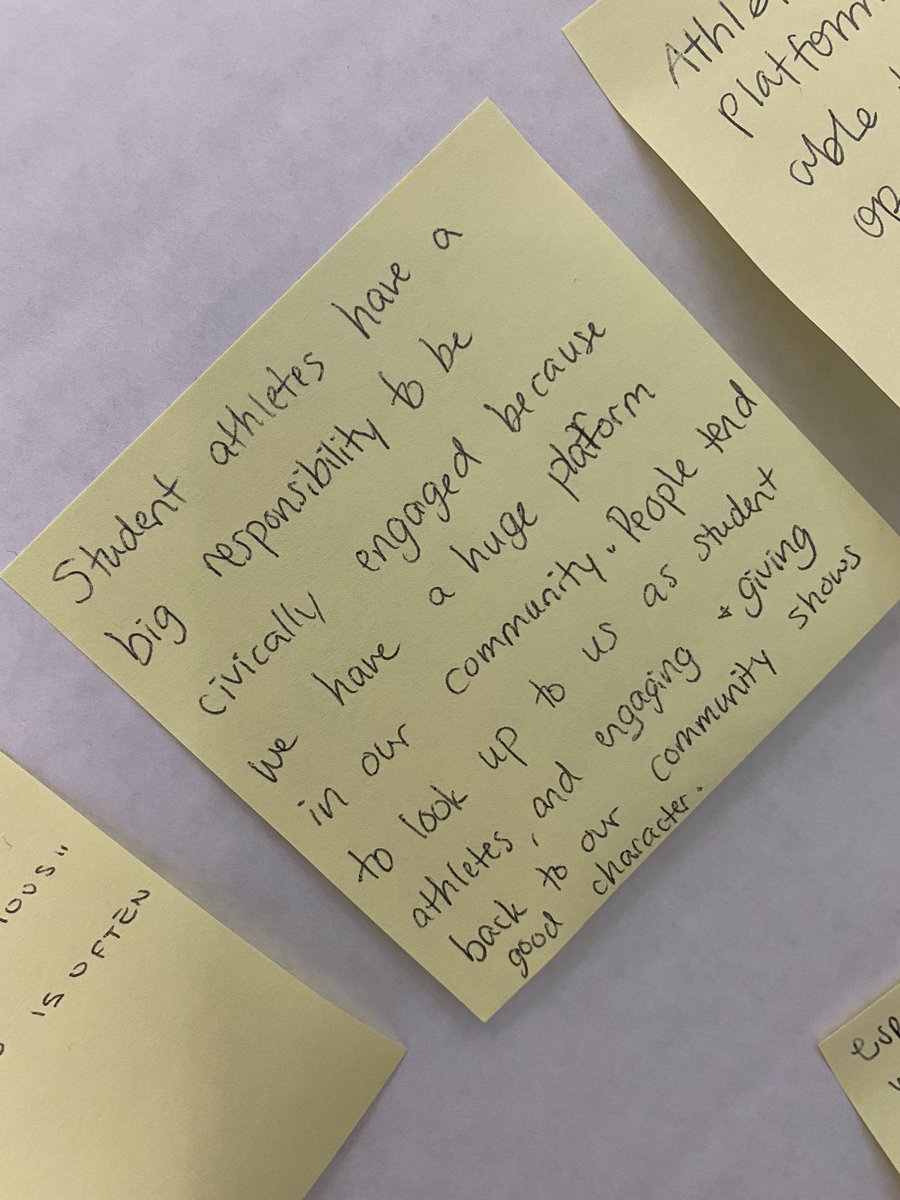 Student athletes have a
big responsibility to be
civically engaged because
we have a huge platform
in our community. People tend
to look up to us as student
athletes, and engaging + giving
back to our community shows
good character.
platform
able
IS OFTEN